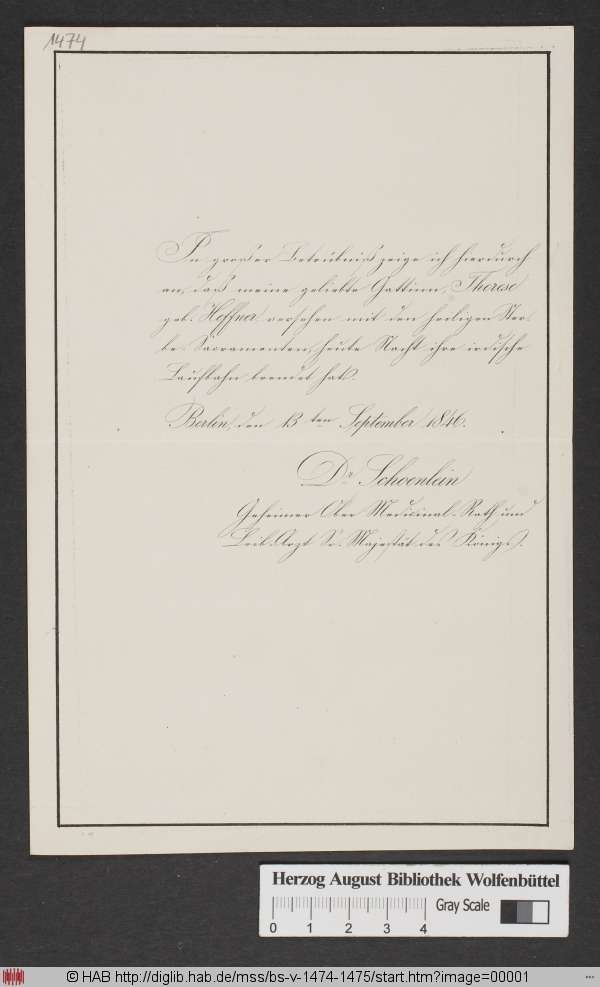 1474
In grosser Betrübniß zeige ich hierdurch
an, daß meine geliebte Gattinn, Therese
geb. Heffner versehen mit den heiligen Ster-
be-Sacramenten, heute Nacht ihre irdische
Laufbahn beendet hat.
Berlin, den 13ten September 1846.
Dr Schoenlein
Geheimer Ober Medicinal-Rath und
Leib-Arzt Sr. Majestät des Königs.
Herzog August Bibliothek Wolfenbüttel
Gray Scale
0 1 2 3 4
© HAB http://diglib.hab.de/mss/bs-v-1474-1475/start.htm?image=00001